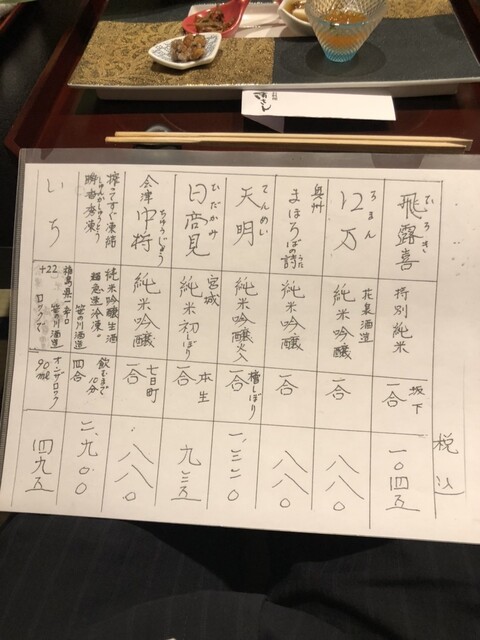 税込
飛露喜
ひろき
特別純米
坂下
一合
一〇四五
ロ万
ろまん
花泉酒造
純米吟醸
一合
八八〇
奥州
まほろばの詩
うた
純米吟醸
一合
八八〇
天明
てんめい
純米吟醸火入
槽しぼり
一合
一、三二〇
日高見
ひだかみ
宮城
純米初しぼり
本生
一合
九三五
会津中将
ちゅうじょう
純米吟醸
七日町
一合
八八〇
搾ってすぐ凍結
瞬香秀凍
しゅんかしゅうとう
純米吟醸生酒
超急速冷凍。
笹の川酒造
飲むまで
10分
四合
二、九〇〇
いち
福島県一辛口
+22
笹の川酒造
ロックで
オンザロック
90ml
四九五